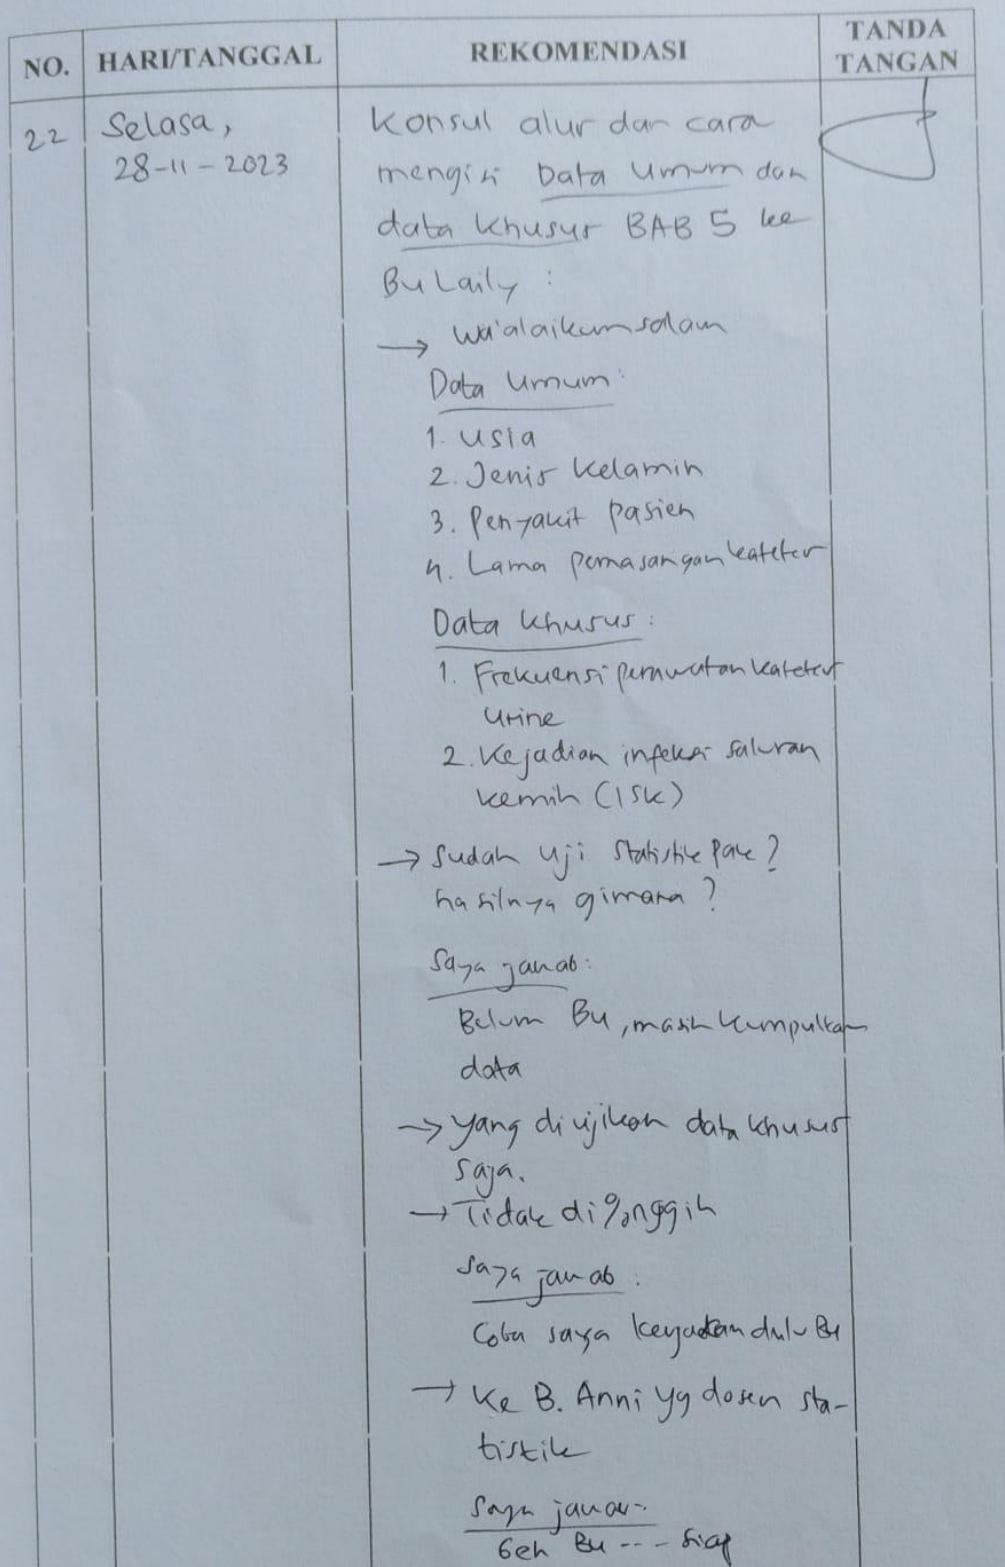 NO.
HARI/TANGGAL
REKOMENDASI
TANDA
TANGAN
22
Selasa,
28-11-2023
Konsul alur dan cara
mengisi Data Umum dan
data khusus BAB 5 ke
Bu Laily :
→ Wa'alaikumsalam
Data Umum:
1. Usia
2. Jenis Kelamin
3. Penyakit pasien
4. Lama pemasangan kateter
Data Khusus :
1. Frekuensi perawatan kateter
urine
2. Kejadian infeksi saluran
kemih (ISK)
→ Sudah Uji Statistik Pak ?
hasilnya gimana ?
Saya jawab:
Belum Bu, masih kumpulkan
data
→ Yang diujikan data khusus
saja.
→ Tidak
Saya jawab :
Coba saya kerjakan dulu Bu
→ Ke B. Anni yg dosen sta-
tistik
Saya jawab
Geh Bu --- Siap